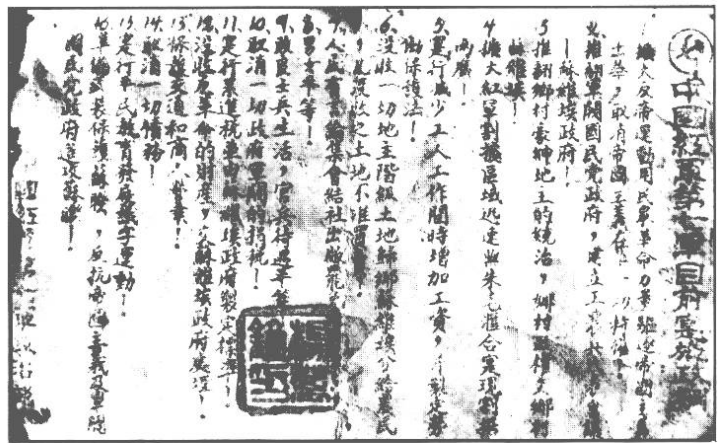 中國紅軍第七軍目前實施政綱
擴大反帝運動用民眾革命力量驅逐帝國主義
出華,取消帝國主義在華一切特權!
2,推翻軍閥國民党政府,建立工農兵代
—蘇維埃政府!
3推翻鄉村豪紳地主的統治,鄉村政權交鄉村
蘇維埃!
4擴大紅軍割據區域迅速與朱毛匯合實現割據
兩廣!
5,實行減少工人工作間時增加工資,勞
動保護法!
6,沒收一切地主階級土地歸鄉蘇維埃分給農民
沒收之土地不准買賣!
7,人民有言論集會結社出版罷工
8,男女平等!
9,改良士兵生活,官兵待遇平等
10取消一切政府軍閥的捐税!
11實行累進税率由蘇維埃政府製定標準!
12沒收反革命的財產,交蘇維埃政府處理!
13保護交通和商,營業!
14.取消一切債務!
15實行平民教育發展識字運動!
16準備武装保護蘇聯,反抗帝國主義及軍閥
國民党政府進攻蘇聯!